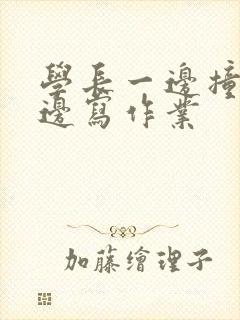 學長一邊撞
邊寫作業
加藤繪理子